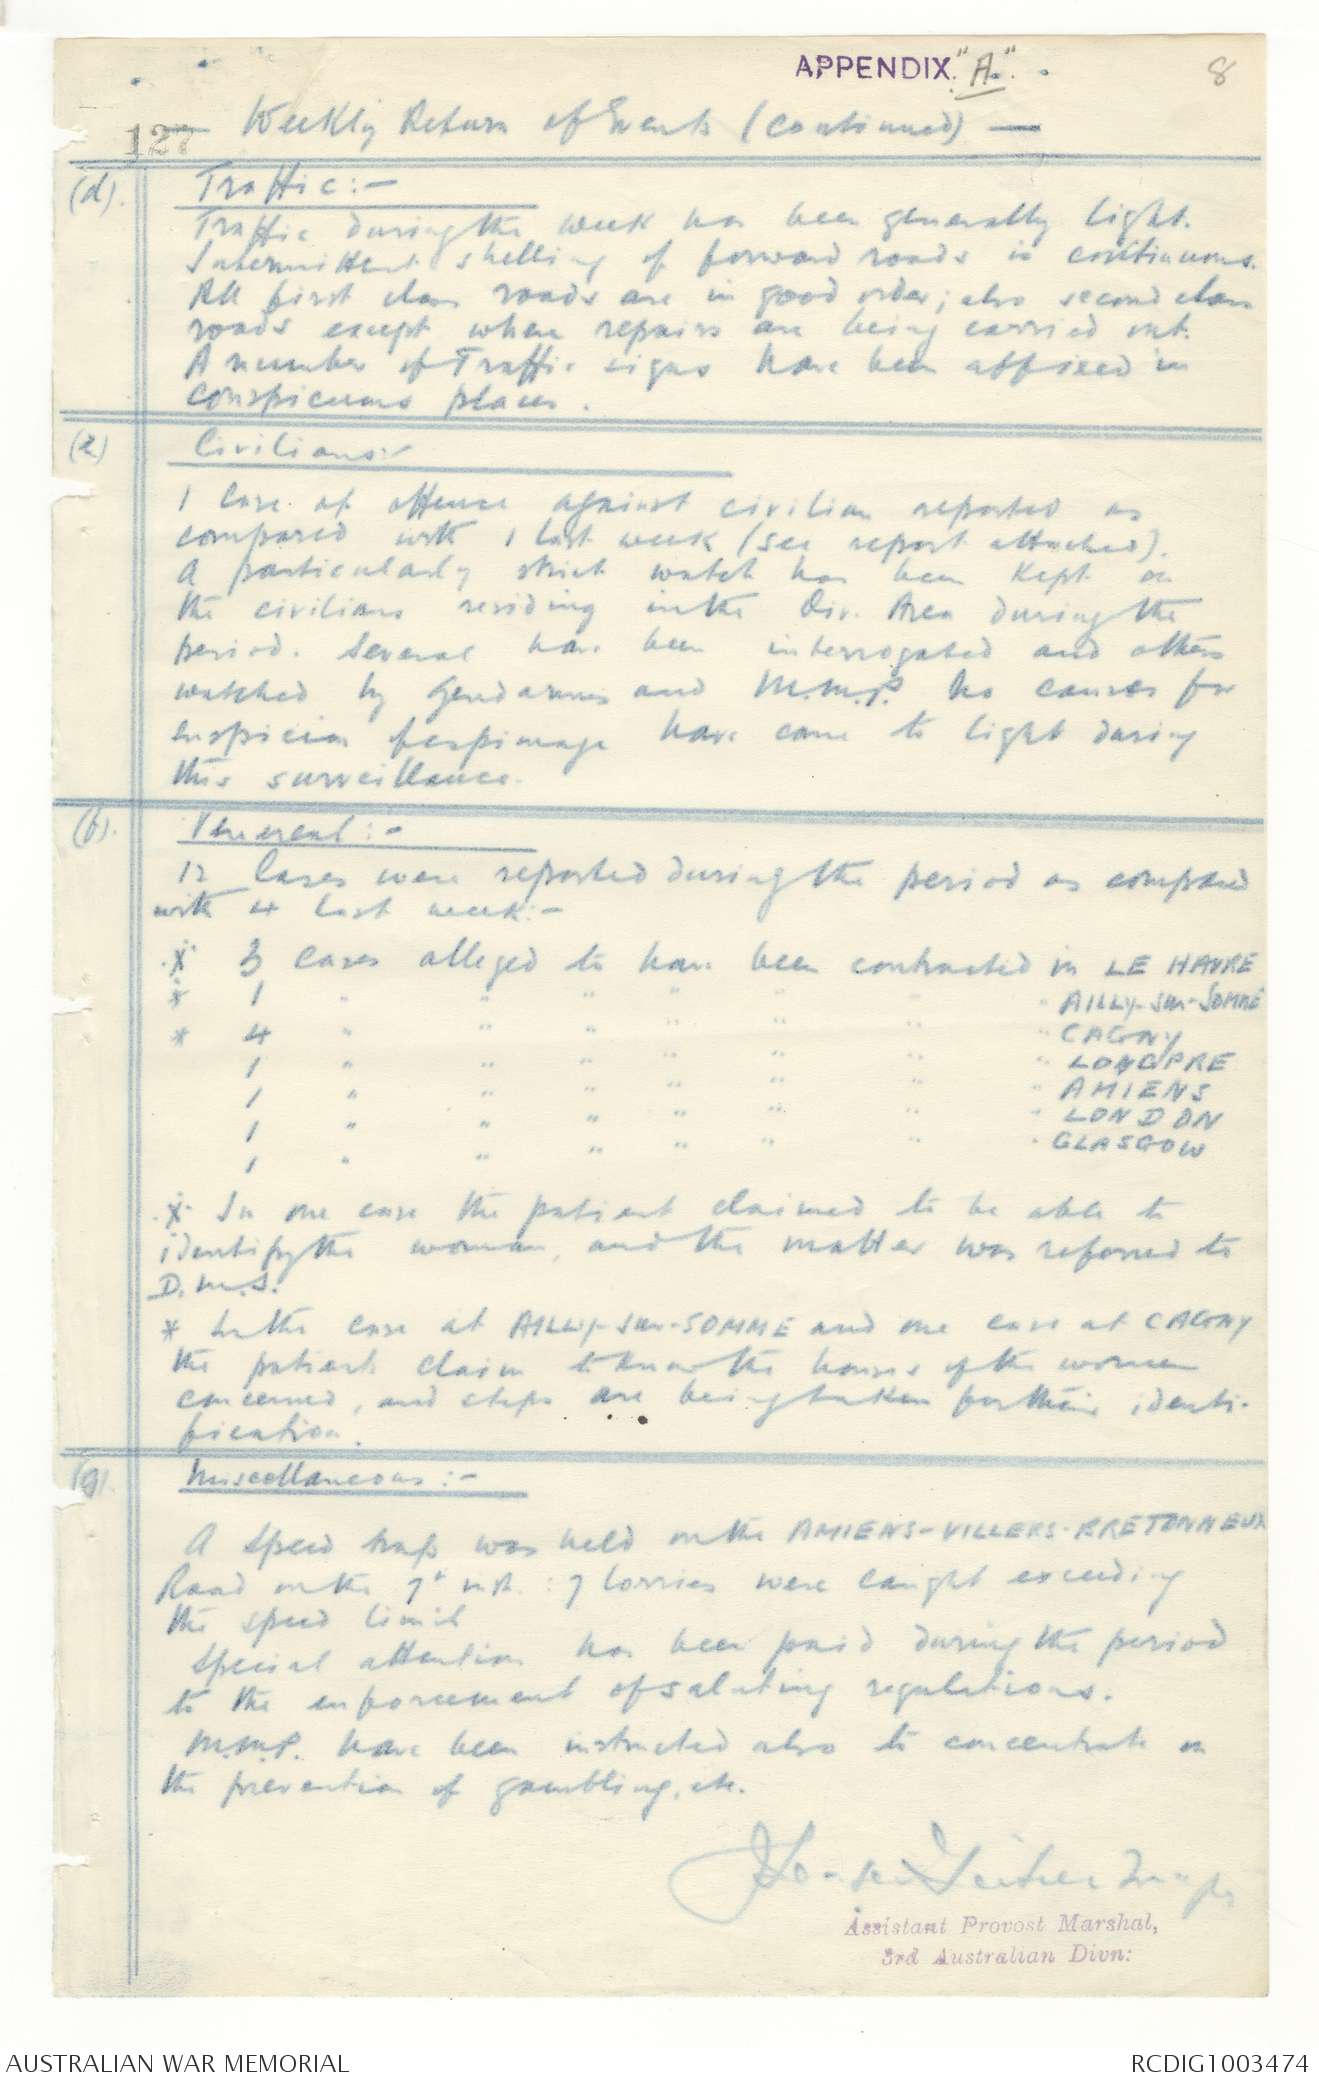 APPENDIX "A".
8
127
Weekly Return of Events (continued) —
(d). Traffic:-
Traffic during the week has been generally light.
Intermittent shelling of forward roads is continuous.
All first class roads are in good order; also second class
roads except where repairs are being carried out.
A number of Traffic signs have been affixed in
conspicuous places.
(e) Civilians:-
1 Case of offence against civilian reported as
compared with 1 last week (see report attached).
A particularly strict watch has been kept on
the civilians residing in the Div. Area during the
period. Several have been interrogated and others
watched by Gendarmes and M.M.P. No causes for
suspicion of espionage have come to light during
this surveillance.
(f). Venereal:-
12 Cases were reported during the period as compared
with 4 last week:-
※ 3 Cases alleged to have been contracted in LE HAVRE
* 1 " " " " " " " AILLY-sur-SOMME
* 4 " " " " " " " CAGNY
1 " " " " " " " LONGPRE
1 " " " " " " " AMIENS
1 " " " " " " " LONDON
1 " " " " " " " GLASGOW
※ In one case the patient claimed to be able to
identify the woman, and the matter was referred to
D.M.S.
* In the case at AILLY-sur-SOMME and one case at CAGNY
the patients claim to know the houses of the women
concerned, and steps are being taken for their identi-
fication.
(g). Miscellaneous:-
A speed trap was held on the AMIENS-VILLERS-BRETONNEUX
Road on the 7th inst.: 7 lorries were caught exceeding
the speed limit
Special attention has been paid during the period
to the enforcement of saluting regulations.
M.M.P. have been instructed also to concentrate on
the prevention of gambling, etc.
Assistant Provost Marshal,
3rd Australian Divn:
AUSTRALIAN WAR MEMORIAL
RCDIG1003474